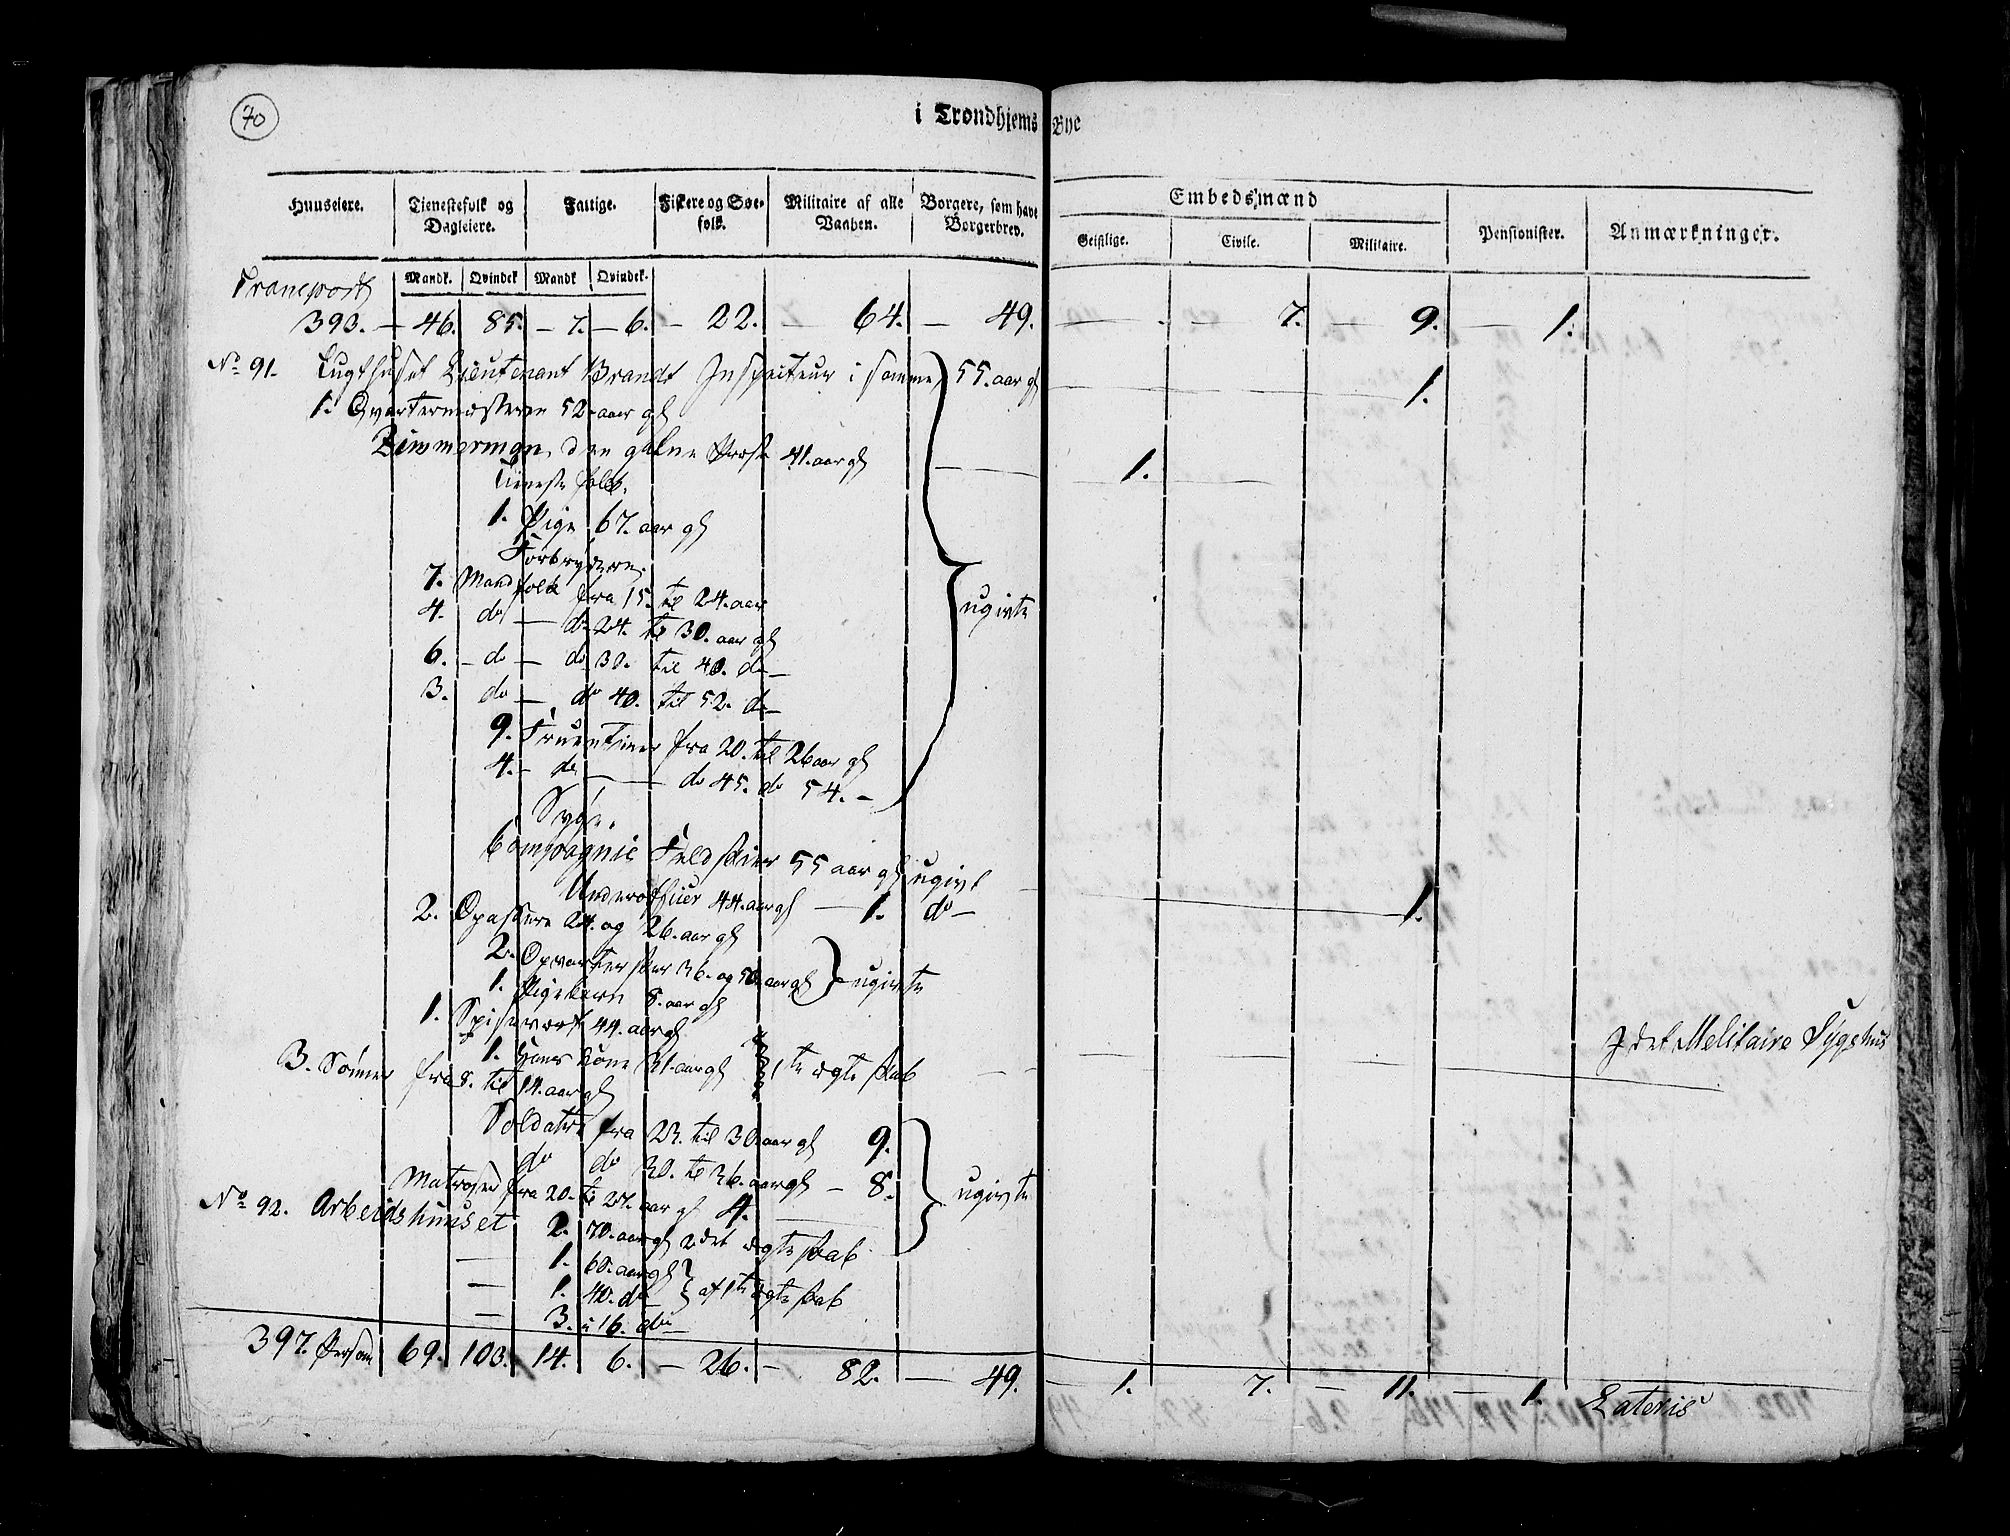 70
i Trondhjems Bye
Huuseiere. Tienestefolk og Dagleiere. Fattige. Fiskere og Søefolk. Militaire af alle Vaaben. Borgere, som have Borgerbrev. Embedsmænd Pensionister. Anmærkninger.
Geistlige. Civile. Militaire.
Mandk. Qvindek Mandk Qvindek.
Transport
393. — 46. 85. — 7. — 6. — 22. — 64. — 49. — 7. — 9. — 1.
No 91. Tugthuset Lieutenant Brandt Inspecteur i samme 55. aar gl 1.
1. Qvartermesteren 52. aar gl
Zimmerman, den galne Præst 41. aar gl 1.
Tieneste folk.
1. Pige 67. aar gl
Forbrydere.
7. Mandfolk fra 15. til 24. aar
4. do — do 24. til 30. aar gl
ugivte
6. — do — do 30. til 40. do —
3. do — do 40. til 52. do —
9. Fruentimer fra 20. til 26 aar gl
4. — do — do 45. do 54. —
Syge.
Compagnie Feldskier 55 aar gl ugivt 1.
Underofficier 44. aar gl — 1. do —
2. Opassere 24. og 26. aar gl
2. Opvartersker 36. og 50. aar gl ugivte
1. Pigebarn 8. aar gl
1. Spisevært 44. aar gl
1. Hans Kone 31. aar gl 1te ægteskab
I det Melitaire Sygehus
3. Sønner fra 8. til 14. aar gl
Soldater fra 23. til 30. aar gl 9.
do do 30. til 36. aar gl — 8.
Matroser fra 20. til 27. aar gl 4.
ugivte
No 92. Arbeidshuuset
2. 70. aar gl 2det ægteskab
— 1. 60. aar gl
— 1. 40. do af 1te ægteskab
— 3. i 16. do —
397. Person 69. 103. 14. 6. — 26. — 82. — 49. — 1. 7. — 11. — 1. Lateris